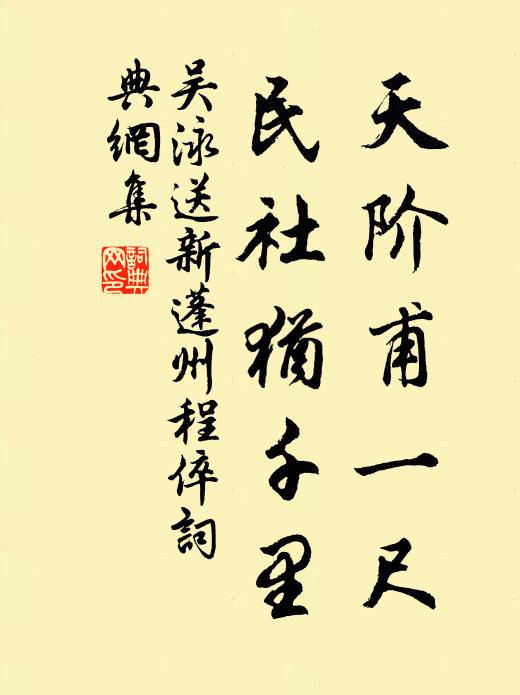 天阶甫一尺
民社犹千里
吴泳送新蓬州程倅詞
典網集
詞典
网印